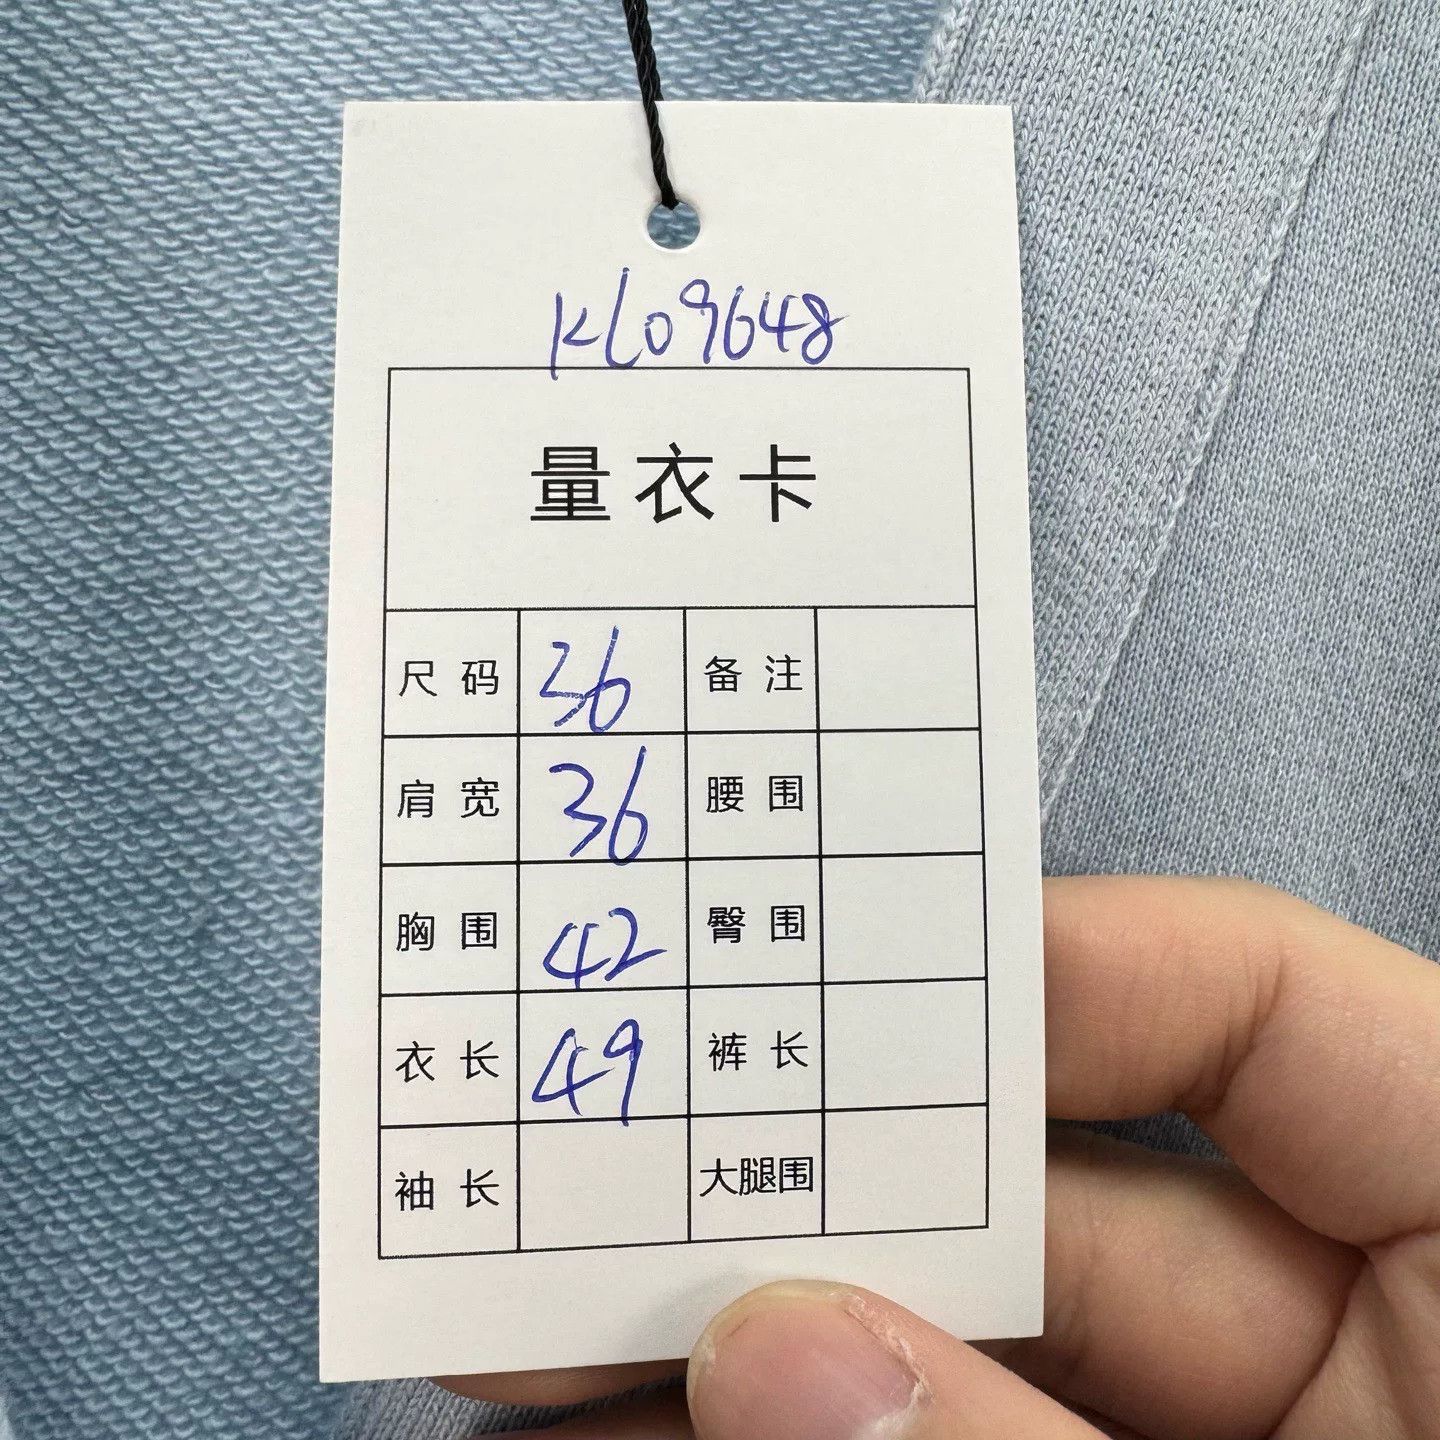 KL09648
量衣卡
尺码 36 备注
肩宽 36 腰围
胸围 42 臀围
衣长 49 裤长
袖长 大腿围